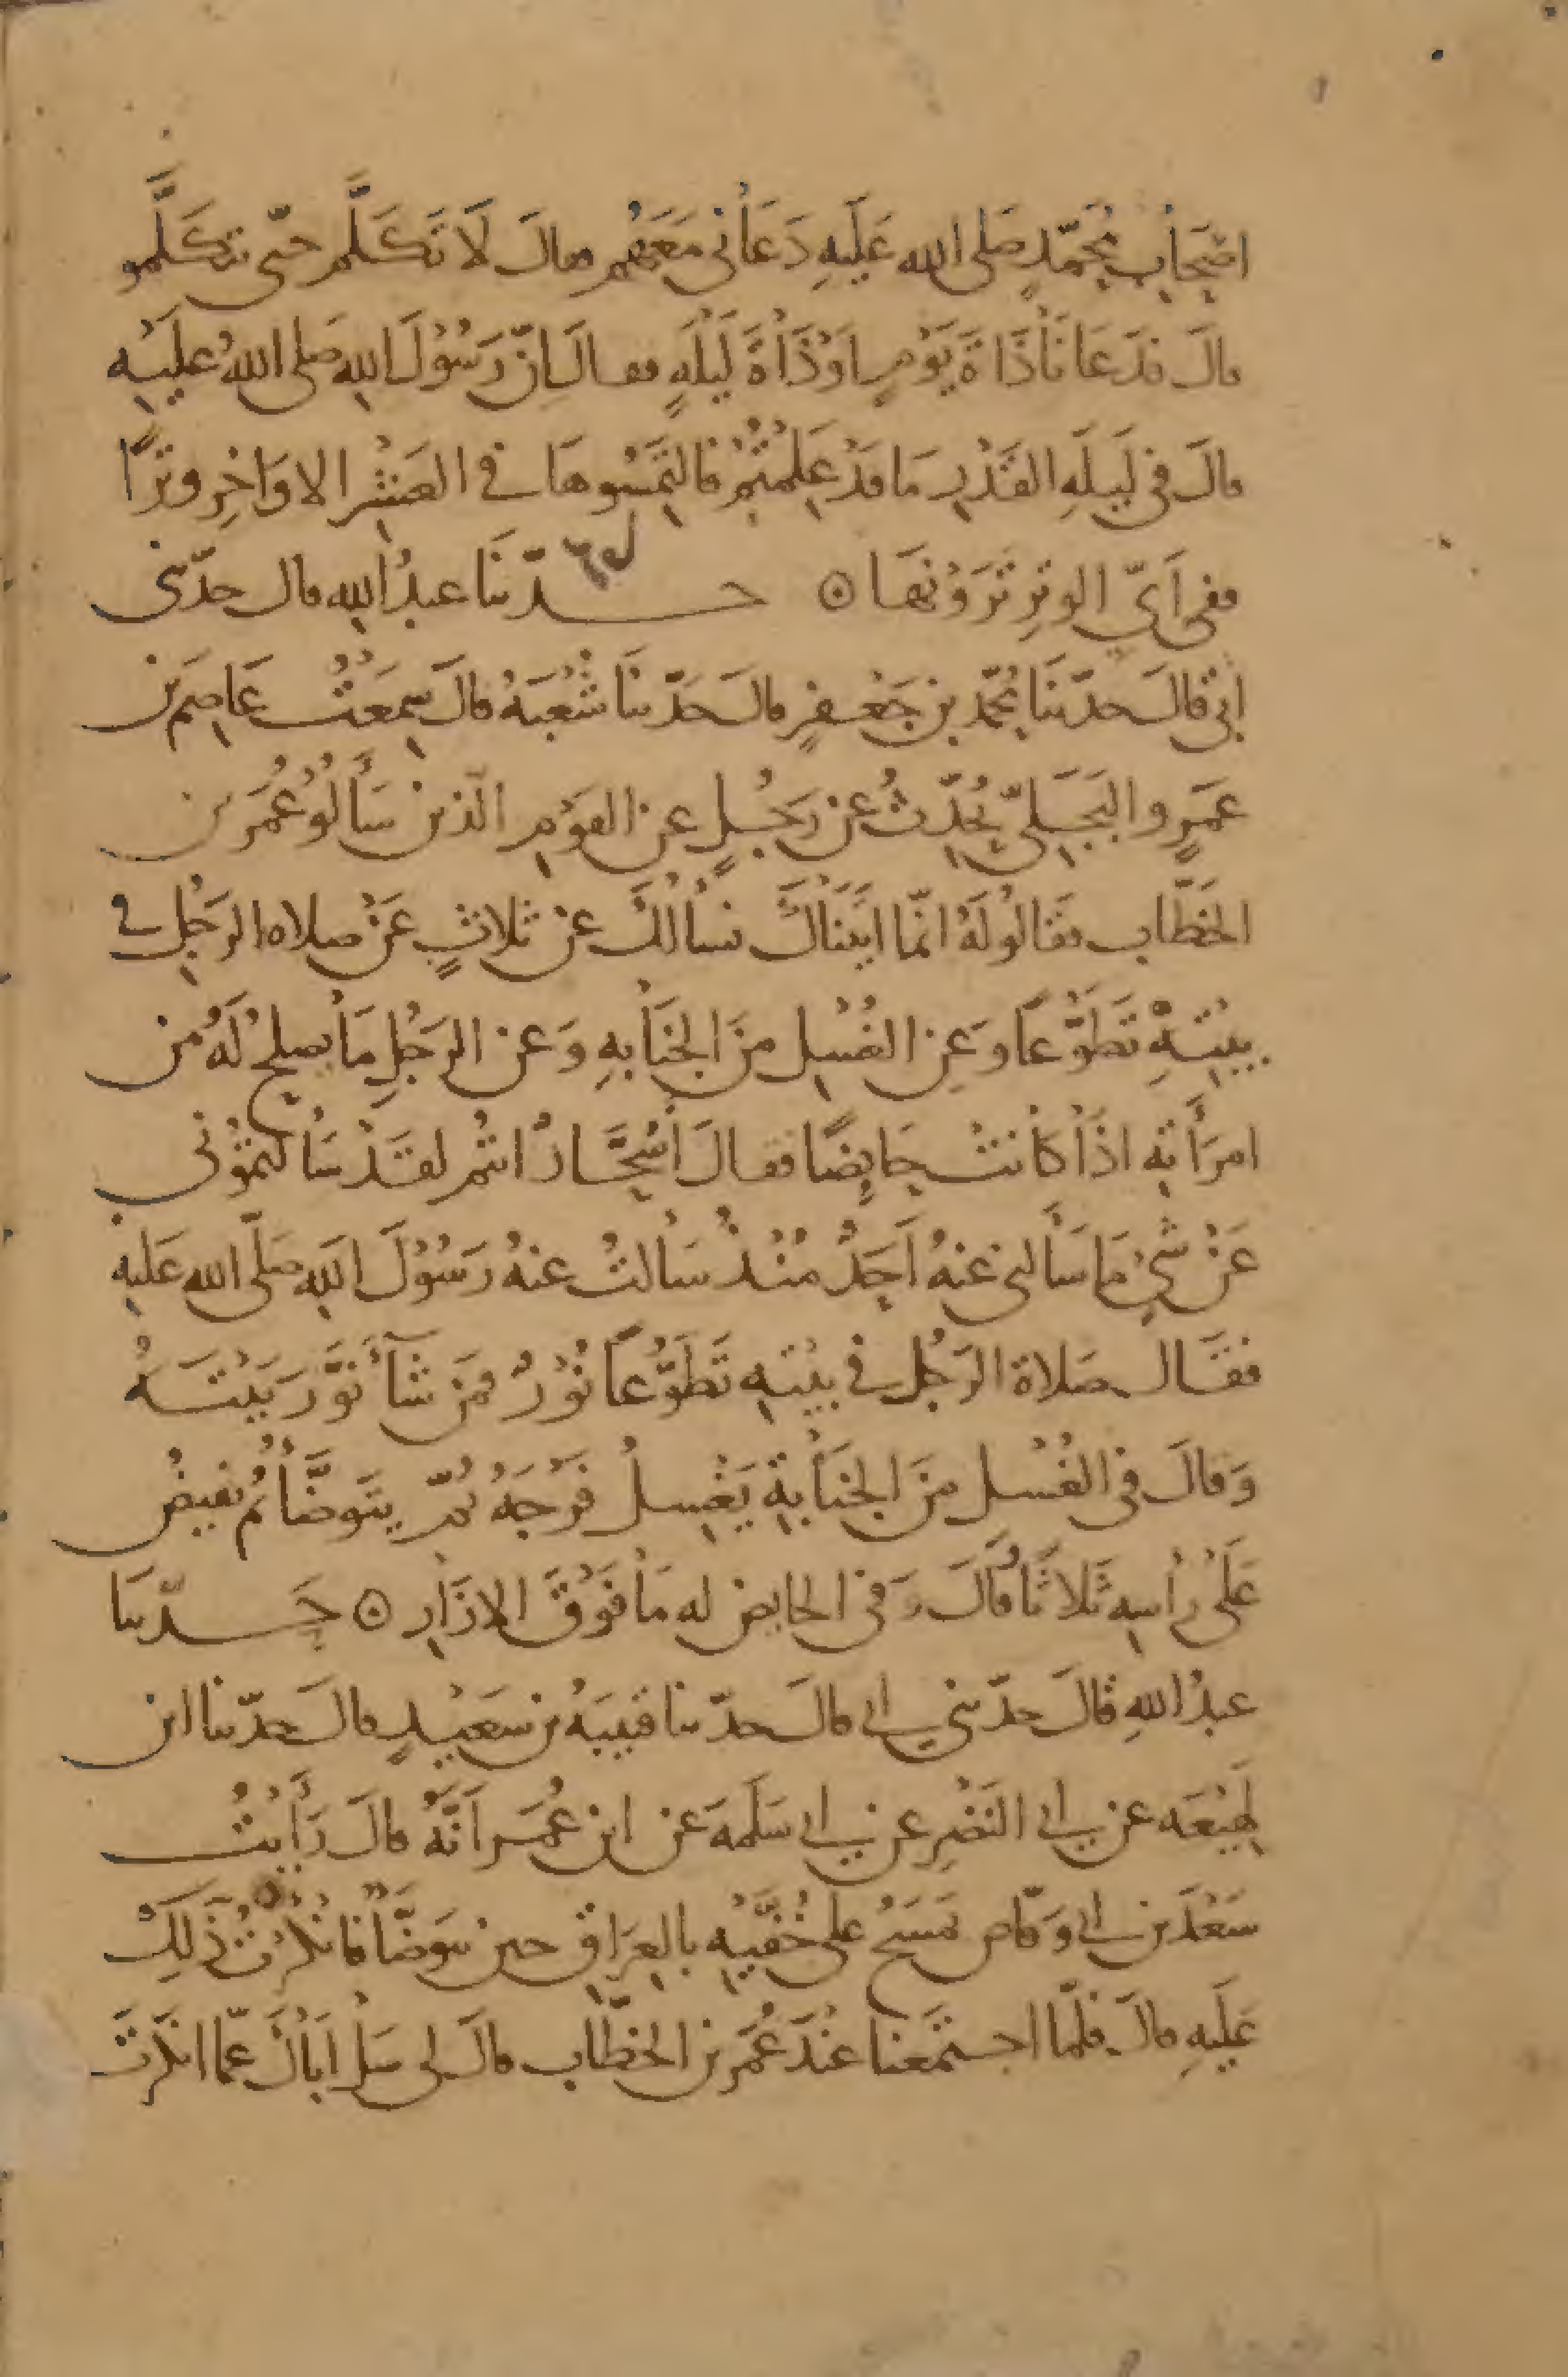 اصْحَابِ مُحَمّدٍ صَلى الله عَلَيهِ دَعَانى مَعَهُم وقالَ لَا تَكَلَّم حتّى تَتكَلَّمو
قالَ فدَعَانَا ذَاةَ يَوْمٍ اوْ ذَاةَ لَيْلَةٍ فقالَ اِنّ رَسُوْلَ اللهِ صَلى اللهُ عليْهِ
قالَ فى لَيلَةِ القَدْرِ مَا قدْ عَلِمْتُمْ فالتَمِسُوهَا فى العَشْرِ الاوَاخِرِ وترًا
ففى اَيّ الوترِ تَرَوْنَهَا ۞ حدّثنَا عبدُ اللهِ قال حدّثنى
ابى قالَ حدّثنَا مُحمّد بن جَعْفرٍ قالَ حَدّثنَا شُعْبَةُ قالَ سِمَعْتُ عَاصِمَ بن
عَمرٍو البَجَلىّ يُحَدِّثُ عن رَجُلٍ عن القَوْمِ الّذين سَأَلُوْ عُمَرَ بن
الخَطَّابِ فقَالُو لَهُ انّمَا اتَيْنَاكَ نسْأَلُكَ عن ثلاثٍ عَنْ صلاه الرَجُلِ فى
بيْتِهِ تَطَوُّعًا وعَنِ الغُسْلِ مِنَ الجَنَابهِ وَعن الرَجُلِ مَا يصلحُ لَهُ من
امرَأَتِهِ اذَا كانتْ حَايِضًا فقالَ أَسُحَّارٌ انتُم لقَدْ سَأَلتمُوْنى
عَنْ شَىءٍ مَا سَأَلنى عنهُ اَحَدٌ مُنْذُ سَأَلتُ عنهُ رَسُوْلَ اللهِ صَلّى الله عَلَيهِ
فقَال صَلاة الرَجُلِ فى بيْتِهِ تَطَوُّعًا نُوْرٌ فمَن شَآءَ نَوَّرَ بَيْتَهُ
وَقالَ فى الغُسْلِ مِنَ الجَنَابةِ يَغْسِلُ فَرْجَهُ ثمّ يتَوَضَّأُ ثُم يفيضُ
عَلَى رأسِهِ ثَلاثًا وقَالَ وَفى الحايضِ له مَا فَوْقَ الازَارِ ۞ حَدّثنَا
عبدُ اللهِ قالَ حدّثنى ابى قالَ حدّثنا قتيبَةُ بن سَعِيْدٍ قالَ حدّثنا ابن
لَهِيْعَه عن ابى النَضْرِ عن ابى سَلَمهَ عن ابن عُمَر اَنَّهُ قالَ رَأَيتُ
سَعْدَ بن ابى وَقّاص يَمسَحُ على خُفَّيْهِ بالعِرَاقِ حين يتوَضَّأُ فانْكَرتُ ذَلِكَ
عَلَيهِ قالَ فلَمّا اجتمَعنا عنْدَ عُمَر بن الخطّابِ قالَ لى سَلْ اَبَاكَ عمّا انكَرتَ